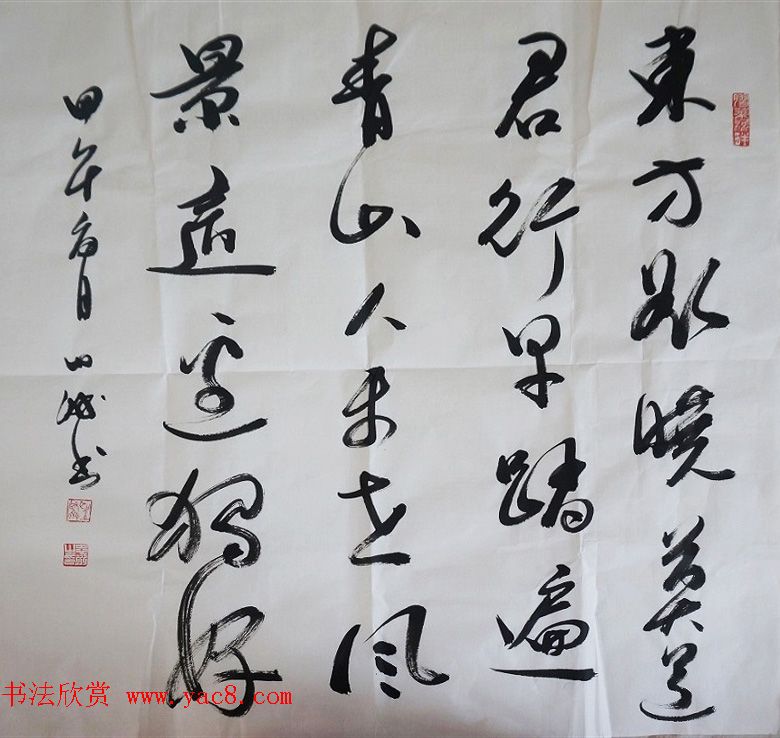 東方欲曉莫道
君行早踏遍
青山人未老风
景這邊獨好
甲午 月 书
书法欣赏 www.yac8.com